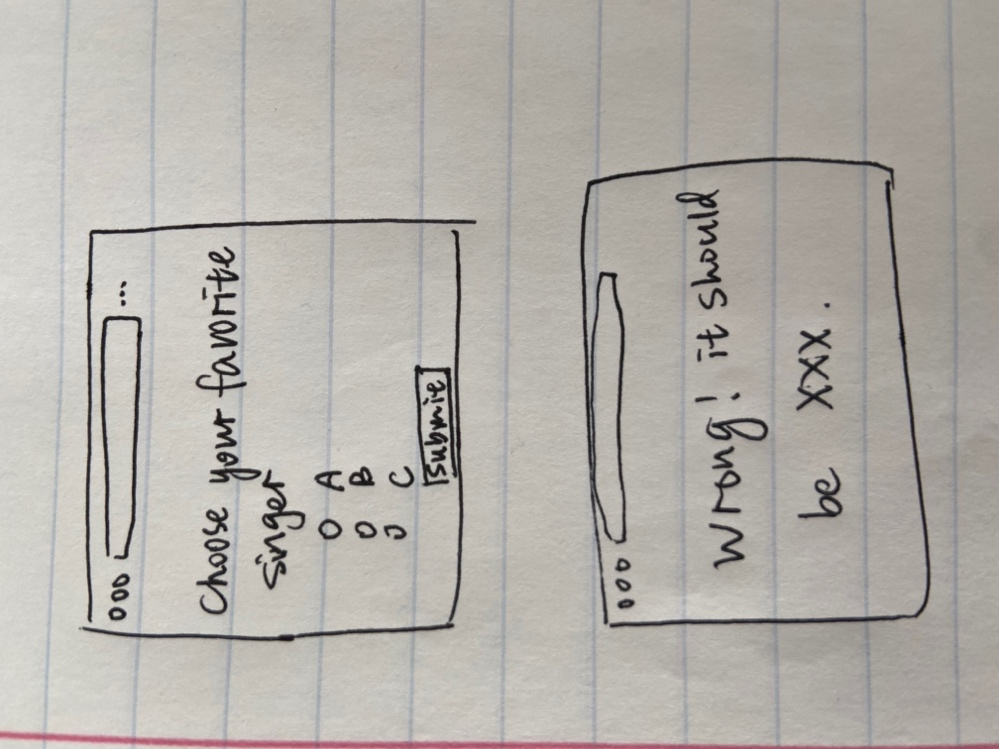 ...
Choose your favorite
singer
A
B
C
Submit
Wrong! it should
be xxx.